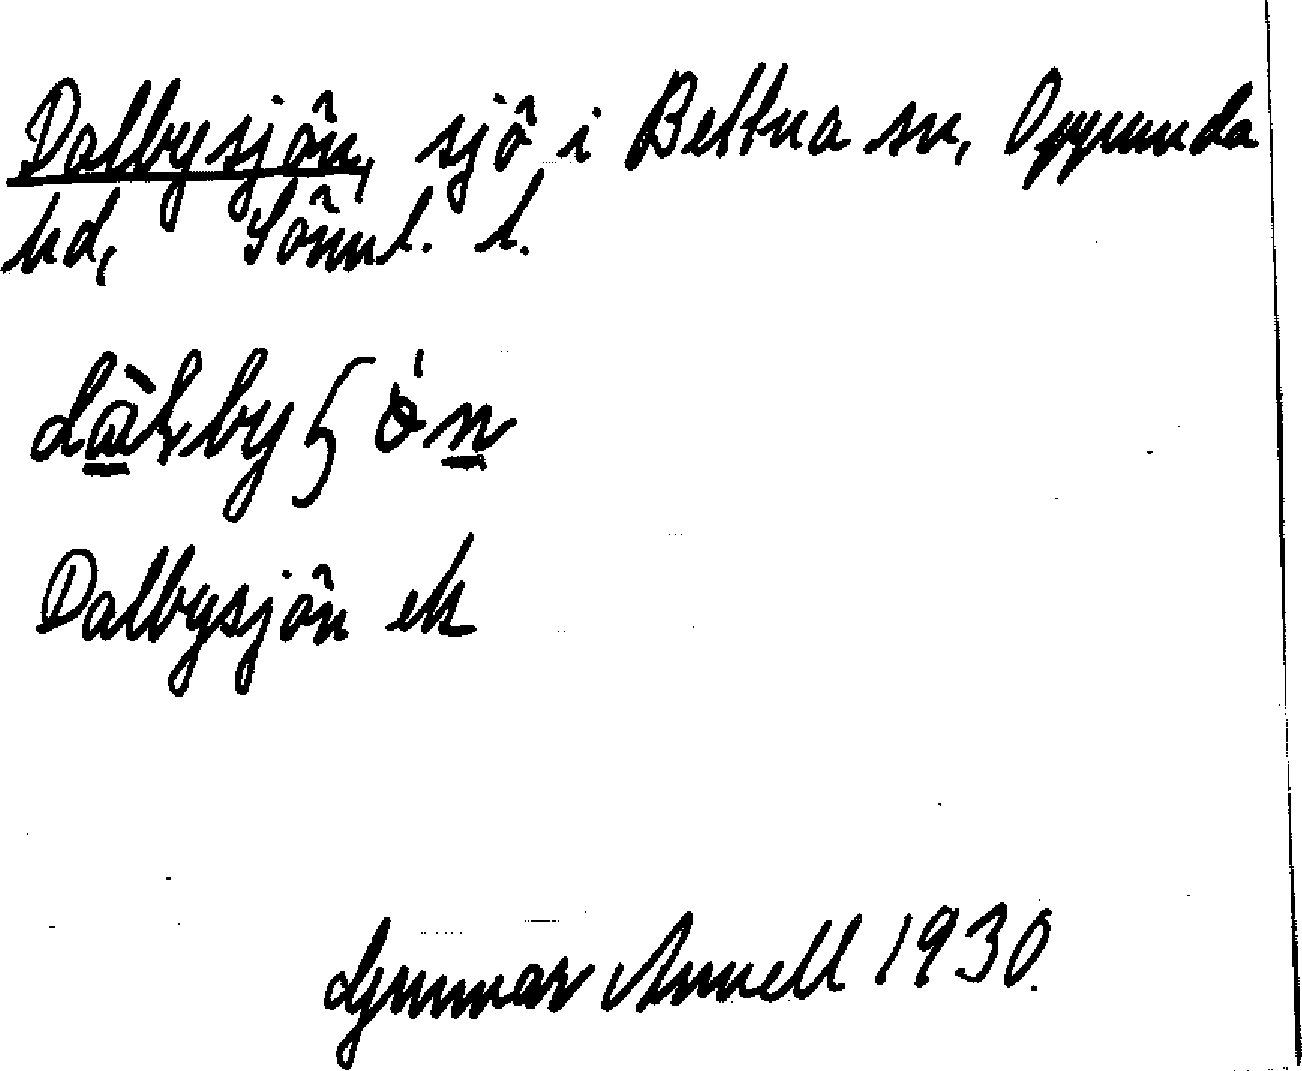 Dalbysjön, sjö i Bettna sn, Oppunda
hd, Söml. l.
Dalbysjön ek
Gunnar Annell 1930.